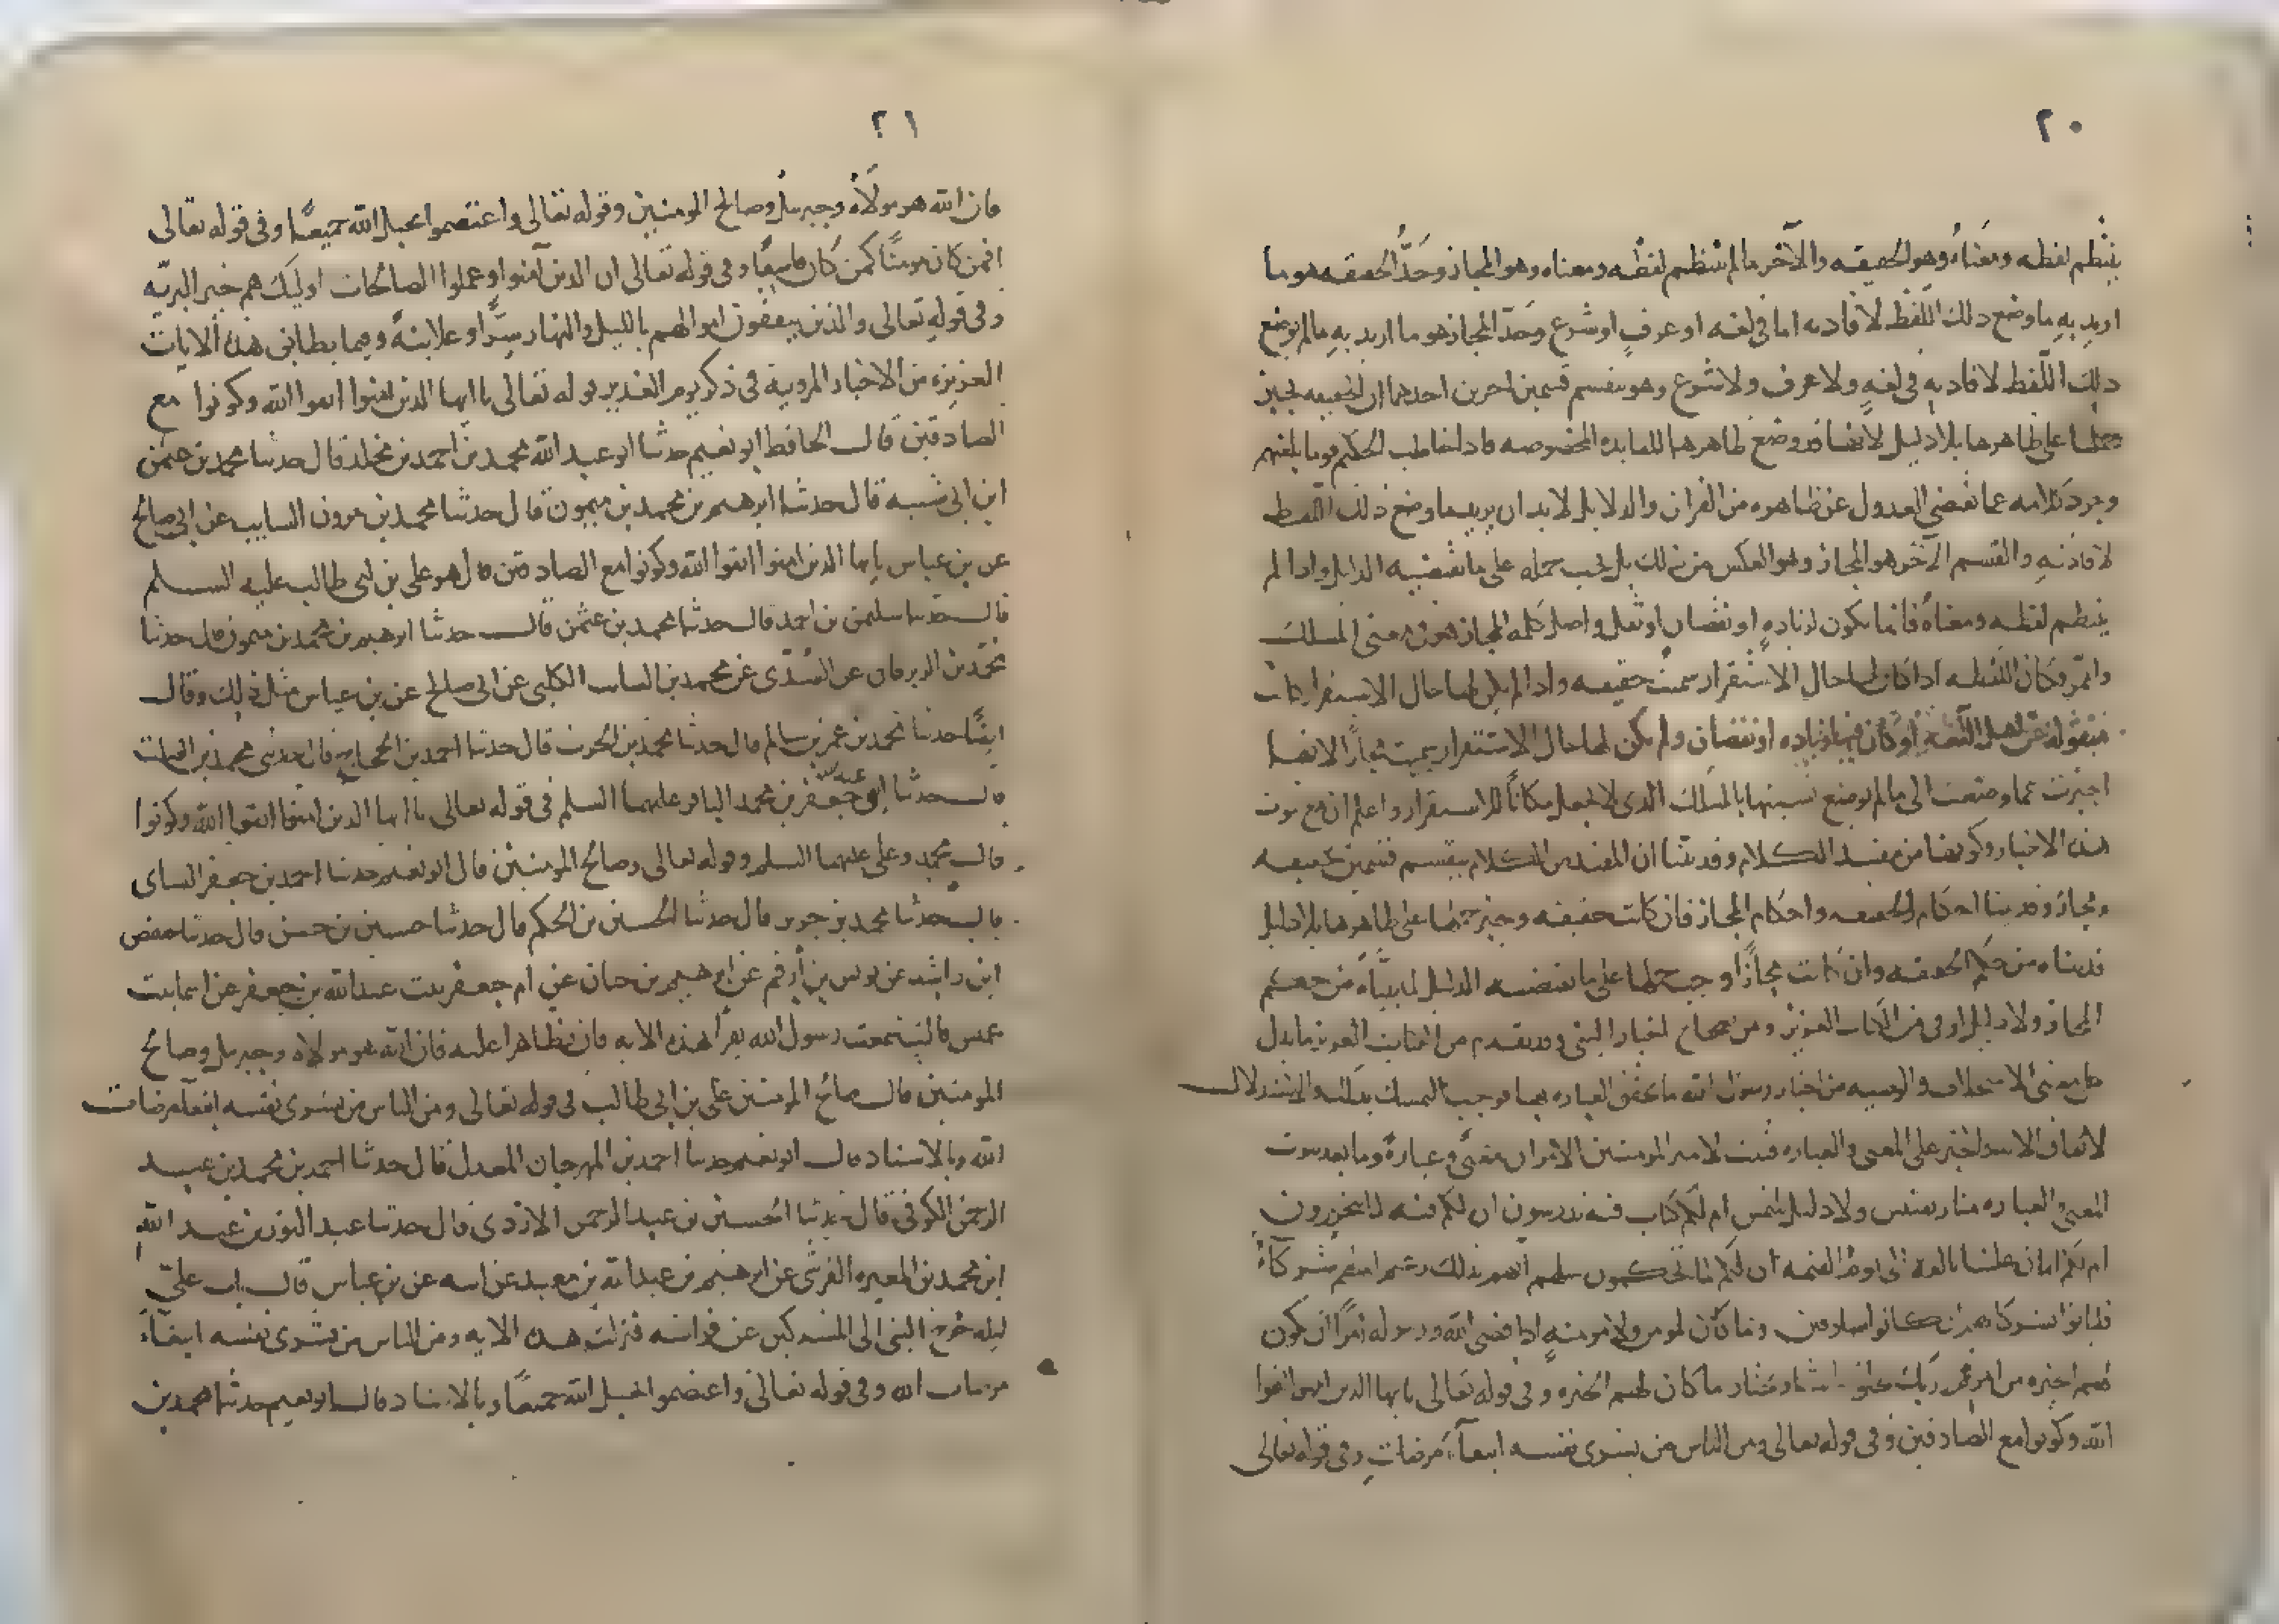 ٢٠
ينتظم لفظه ومعناه وهو الحقيقه والآخر ما لم ينتظم لفظه ومعناه وهو المجاز وحدّ الحقيقه هو ما
اريد بهِ ما وضع ذلك اللفظ لافادته اما في لغه او عرفٍ او شرع وحدّ المجاز هو ما اريد بهِ ما لم يوضع
ذلك اللفظ لافادته في لغهٍ ولا عرف ولا شرع وهو ينقسم قسمين اخرين احدهما ان الحقيقه يجب
حملها على ظاهرها بلا دليل لانها قد وضع ظاهرها للفايده المخصوصه فاذا خاطب الحكيم قوما بلغتهم
وجرد كلامه عما يقتضي العدول عن ظاهره من القران والدلايل لا بد ان يريد ما وضع ذلك اللفظ
لافادتهِ والقسم الآخر هو المجاز وهو العكس من ذلك بل يجب حمله على ما يقتضيه الدليل واذا لم
ينتظم لفظه ومعناهُ فانما يكون لزيادهٍ او نقصان او نقل واصل كلمه المجاز هو في معنى المسلك
والممر وكان اللفظه اذا كان لها حال الاستقرار سميت حقيقه واذا لم يكن لها حال الاستقرار كانت
منقوله عن اهل اللغه او كان فيها زياده او نقصان ولم يكن لها حال الاستقرار سميت مجازًا لانها
اجيزت عما وضعت الى ما لم توضع تشبيها بالمسلك الذي لا يجعل مكانًا للاستقرار واعلم ان مع ثبوت
هذه الاخبار وكونها من مفيد الكلام وقد بينا ان المفيد من الكلام ينقسم قسمين حقيقه
ومجاز وقد بينا احكام الحقيقه واحكام المجاز فان كانت حقيقه وجب حملها على ظاهرها بلا دليل
قدمناه من حكم الحقيقه وان كانت مجازًا وجب حملها على ما يقتضيه الدليل لما بيناه من حكم
المجاز ولا دليل اوفى من الكتاب العزيز ومن صحاح اخبار النبي وقد تقدم من الكتاب العزيز ما يدل
على معنى الاستخلاف والوصيه من اخبار رسول الله ما يحقق العباره بهما فوجب التمسك بذلك والاستدلال
لاتفاق على المعنى والعباره فثبت لامير المومنين الامران معنىً وعبارهً وما بعد ثبوت
المعنى والعباره منار يقتبس ولا دليل يلتمس ام لكم كتاب فيه تدرسون ان لكم فيه لما تخيرون
ام لكم ايمان علينا بالغه الى يوم القيمه ان لكم لما تحكمون سلهم ايهم بذلك زعيم ام لهم شركآءُ
فلياتوا بشركائهم ان كانوا صادقين وما كان لمومن ولا مومنهٍ اذا قضى الله ورسوله امرًا ان يكون
لهم الخيره من امرهم وربك يخلق ما يشاء ويختار ما كان لهم الخيره وفي قوله تَعالى يا ايها الذين امنوا اتقوا
الله وكونوا مع الصادقين وفي قوله تعالى ومن الناس من يشرى نفسه ابتغآء مرضات وفي قوله تعالى
٢١
فان الله هو مولاه وجبريل وصالح المومنين وقوله تعالى واعتصموا بحبل الله جميعًا وفي قوله تعالى
افمن كان مومنًا كمن كان فاسقًا وفي قوله تعالى ان الذين آمنوا وعملوا الصالحات اوليك هم خير البريّه
وفي قولهِ تعالى والذين ينفقون اموالهم بالليل والنهار سرًّا وعلانيةً ومما يطابق هذه الآيات
العزيزه من الاخبار المرويه في ذكر يوم الغدير قوله تعالى يا ايها الذين امنوا اتقوا الله وكونوا مع
الصادقين قال الحافظ ابو نعيم حدثنا ابو عبد الله محمد بن احمد بن مخلد قال حدثنا محمد بن عثمن
ابن ابي شيبه قال حدثنا ابرهيم بن محمد بن ميمون قال حدثنا محمد بن مرون السايب عن ابي صالح
عن بن عباس يا ايها الذين امنوا اتقوا الله وكونوا مع الصادقين قال هو علي بن ابي طالب عليه السلم
قال حدثنا سليمن بن احمد قال حدثنا محمد بن عثمن قال حدثنا ابرهيم بن محمد بن ميمون قال حدثنا
محمّد بن مروان عن السُدّى عن محمد بن السايب الكلبي عن ابي صالح عن بن عباس مثل ذلك وقال
ايضًا حدثنا محمد بن عمر بن سالم قال حدثنا محمد بن الحرث قال حدثنا احمد بن الحجاج قال حدثني محمد بن الصلت
قال حدثنا ابي جعفر بن محمد الباقر عليهما السلم في قوله تعالى يا ايها الذين امنوا اتقوا الله وكونوا
قال محمد وعلي عليهما السلم وقوله تعالى وصالح المومنين قال ابو نعيم حدثنا احمد بن جعفر النساى
قال حدثنا محمد بن جرير قال حدثنا الحسين بن الحكم قال حدثنا حسين بن حسن قال حدثنا حفص
ابن راشد عن يونس بن أرقم عن ابرهيم بن حبان عن ام جعفر بنت عبد الله بن جعفر عن اسما بنت
عميس قالت سمعت رسول الله يقرأ هذه الايه فان تظاهرا عليه فان الله هو مولاه وجبريل وصالح
المومنين قال صالح المومنين علي بن ابي طالب في قوله تعالى ومن الناس من يشرى نفسه ابتغآء مرضات
الله وبالاسناد قال ابو نعيم حدثنا احمد بن المهرجان المعدل قال حدثنا احمد بن محمد بن عبيد
الرحمن الكوفي قال حدثنا الحسين بن عبد الرحمن الازدى قال حدثنا عبد النور بن عبد الله
ابن محمد بن المغيره القرشى عن ابرهيم بن عبد الله بن معبد عن ابيه عن بن عباس قال بات عليّ
ليله خرج النبى الى المشركين عن فراشه فنزلت هذه الايه ومن الناس من يشرى نفسه ابتغآءَ
مرضات الله وفي قوله تعالى واعتصموا بحبل الله جميعًا وبالاسناد قال ابو نعيم حدثنا محمد بن